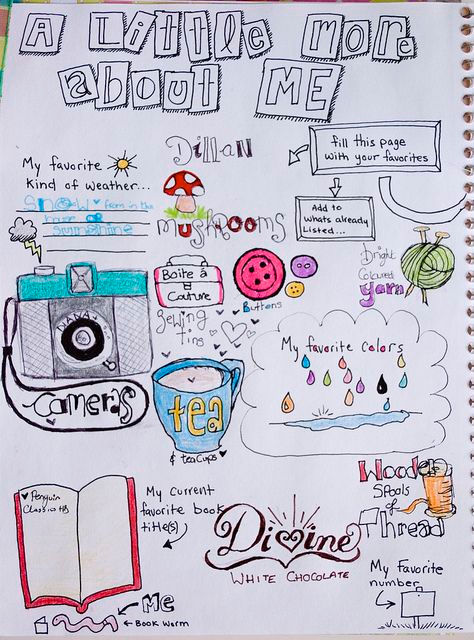 A Little more
about ME
Dillan
fill this page
with your favorites
My favorite
kind of weather...
Snow from in the
house or
sunshine
Add to
whats already
Listed...
mushrooms
Boite à
Couture
Buttons
Bright
Coloured
yarn
Sewing
tins
DIANA
cameras
tea
& teacups
My favorite colors
Wooden
Spools
of
Thread
Penguin
Classic HB
My current
favorite book
title(s)
Divine
WHITE CHOCOLATE
My favorite
number
Me
Book worm